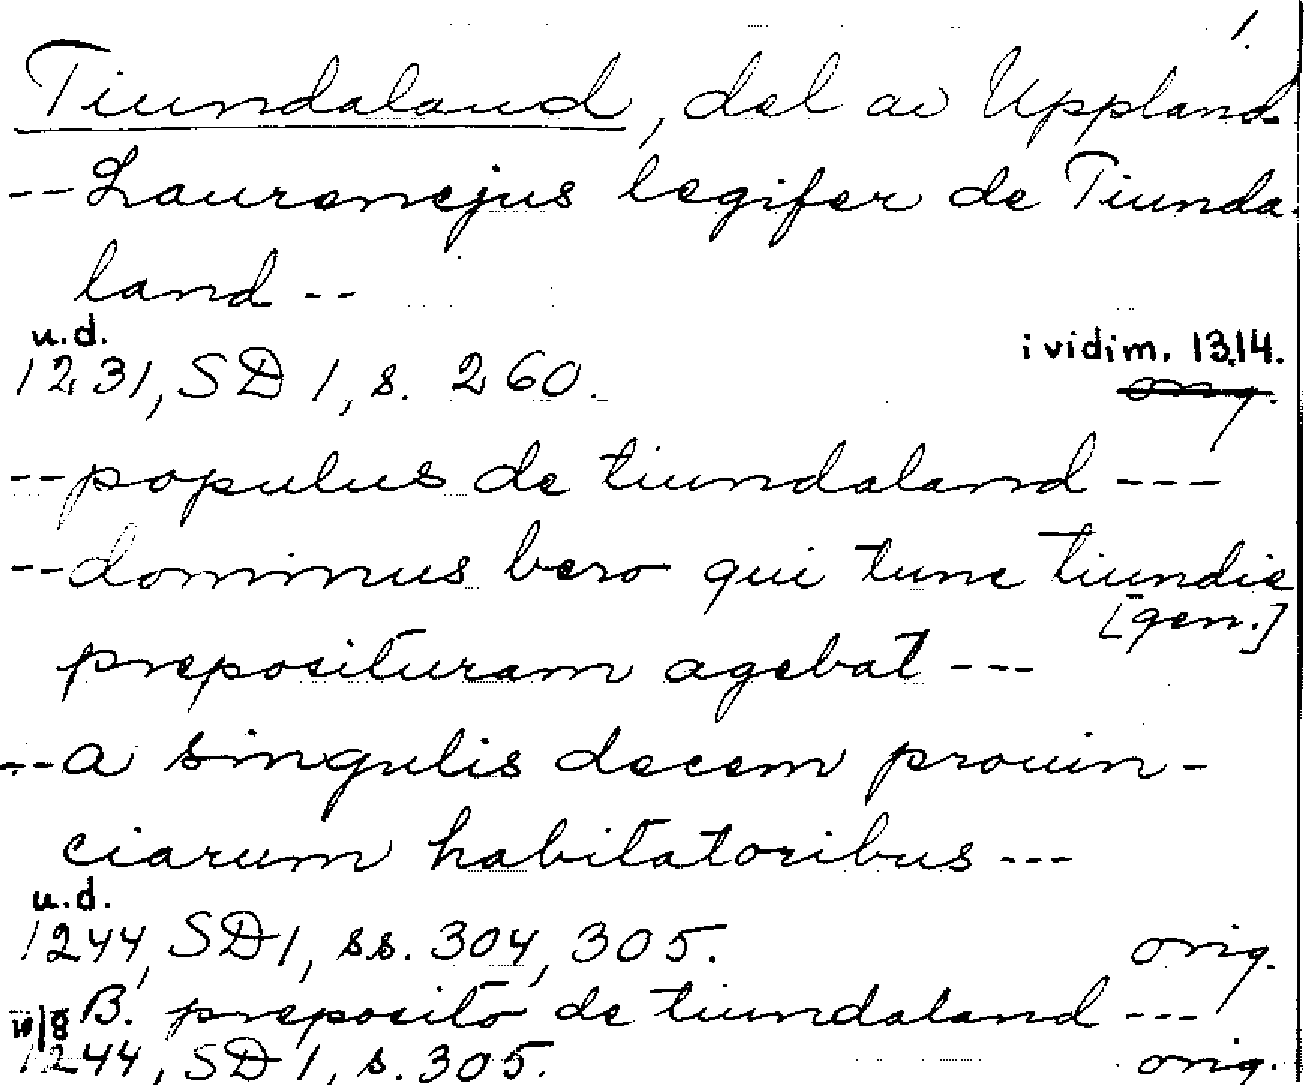 1.
Tiundaland, del av Uppland.
-- Laurencjus legifer de Tiunda-
land --
u.d.
1231, SD 1, s. 260. i vidim. 1314.
orig.
-- populus de tiundaland ---
-- dominus bero qui tunc tiundie
[gen.]
preposituram agebat ---
-- a singulis decem prouin-
ciarum habitatoribus ---
u.d.
1244, SD 1, ss. 304, 305. orig.
B. preposito de tiundaland ---
1244, SD 1, s. 305. orig.